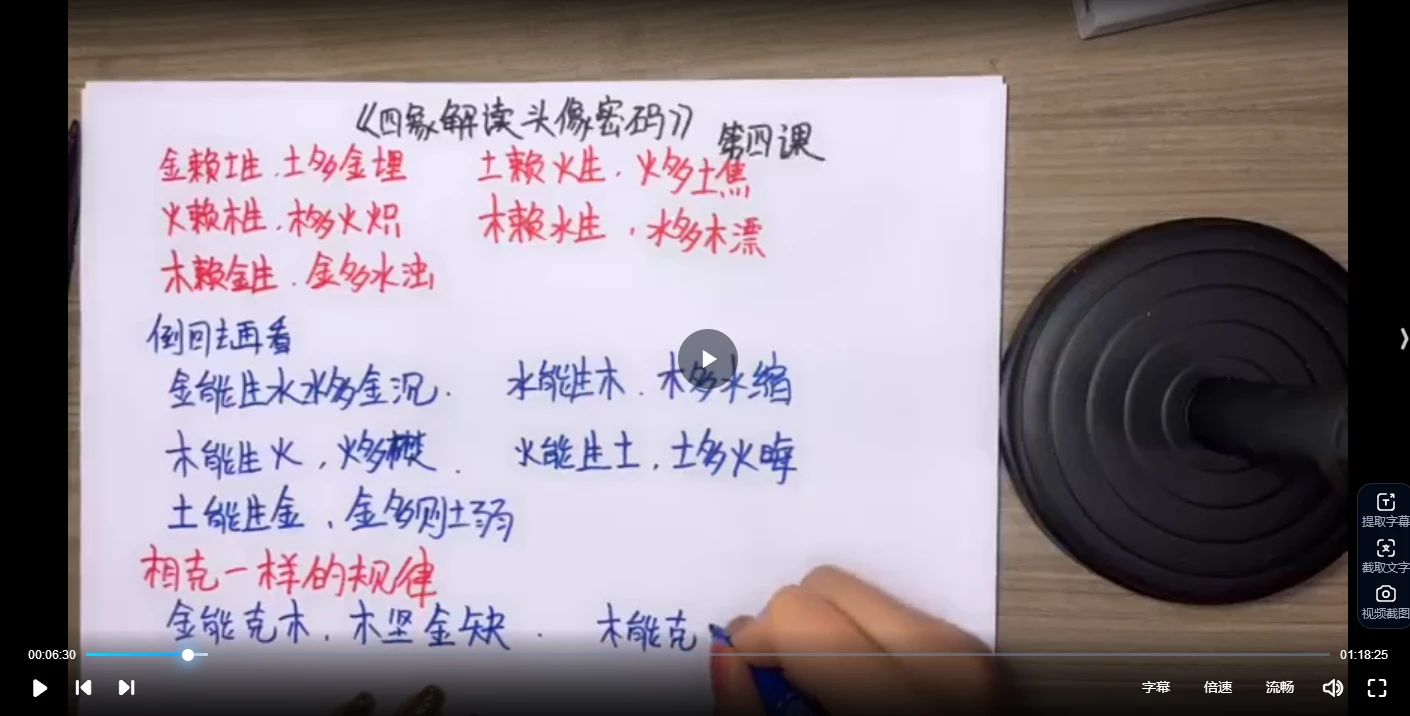 《四象解读头像密码》 第四课
金赖土生.土多金埋 土赖火生.火多土焦
火赖木生.木多火炽 木赖水生.水多木漂
水赖金生.金多水浊
倒回去再看
金能生水水多金沉. 水能生木.木多水缩
木能生火,火多木焚. 火能生土,土多火晦
土能生金,金多则土弱
相克一样的规律
金能克木,木坚金缺. 木能克
提取字幕
截取文字
视频截图
00:06:30 01:18:25
字幕 倍速 流畅